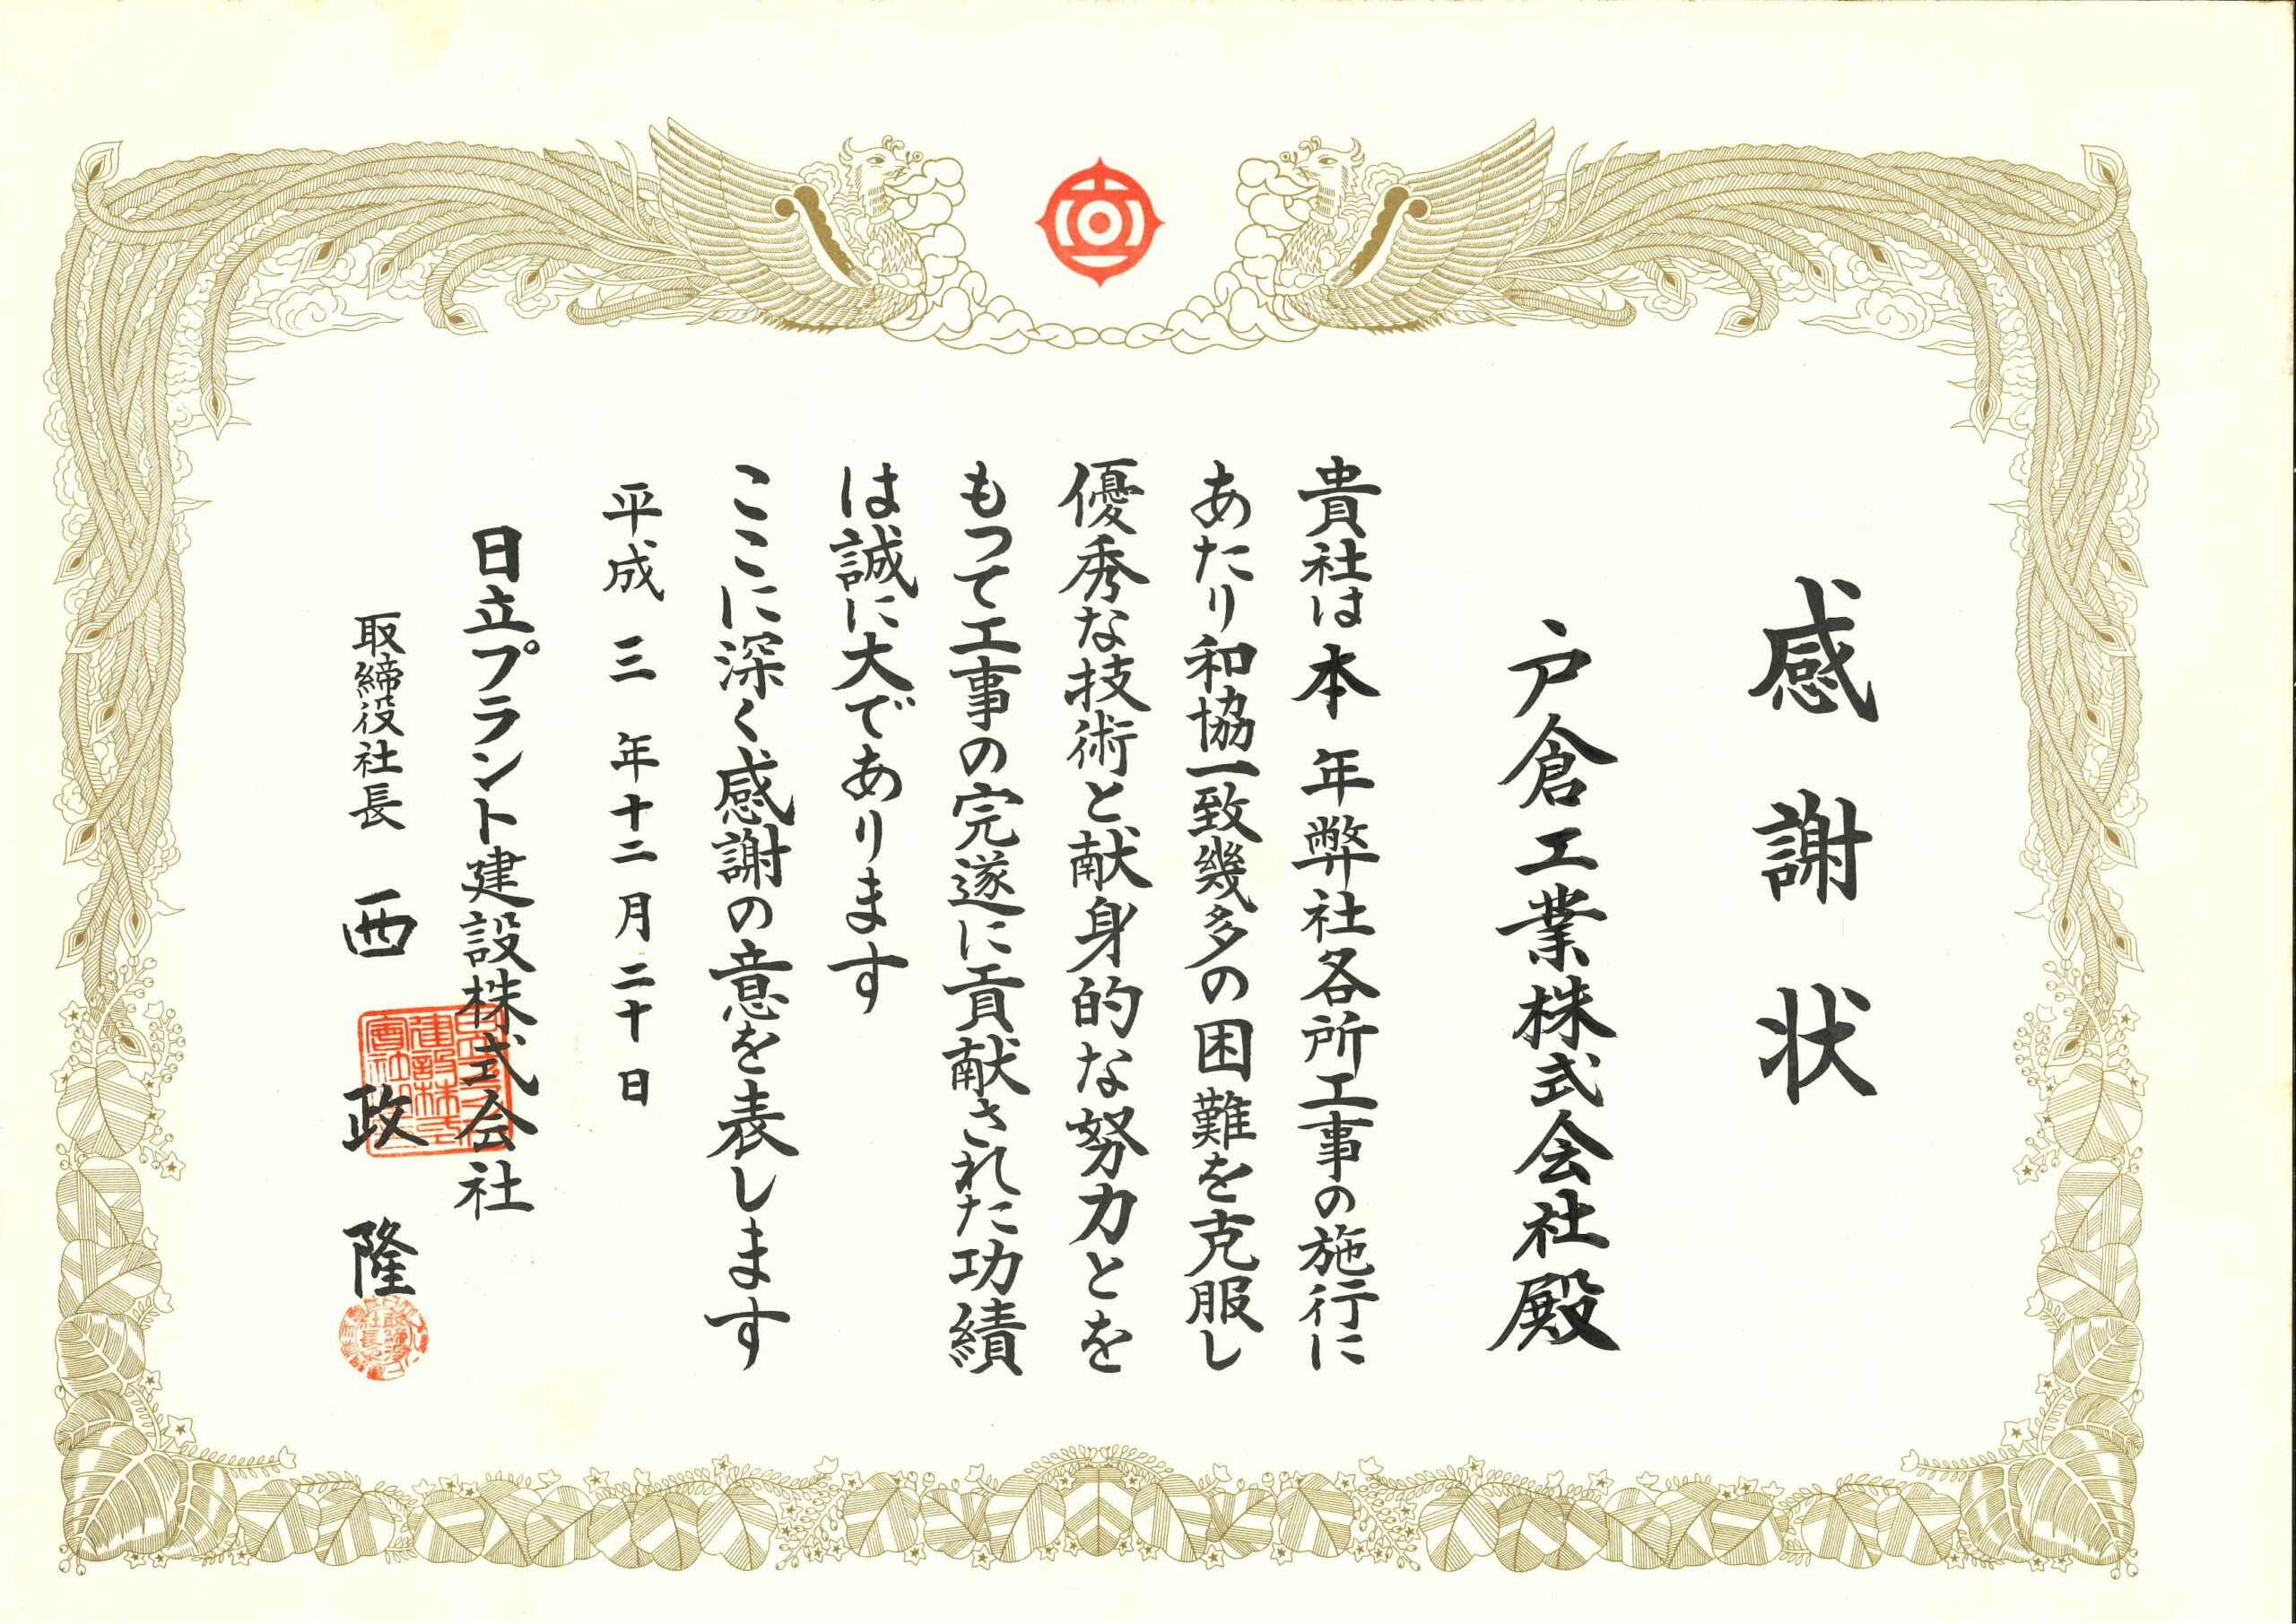 感謝状
戸倉工業株式会社殿
貴社は本年弊社各所工事の施行に
あたり和協一致幾多の困難を克服し
優秀な技術と献身的な努力とを
もつて工事の完遂に貢献された功績
は誠に大であります
ここに深く感謝の意を表します
平成三年十二月二十日
日立プラント建設株式会社
取締役社長 西政隆